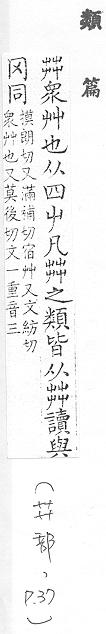 類篇
茻眾艸也从四屮凡茻之類皆从茻讀與
冈同
模朗切又滿補切宿艸又文紡切
眾艸也又莫後切文一重音三
(茻部，P.37)